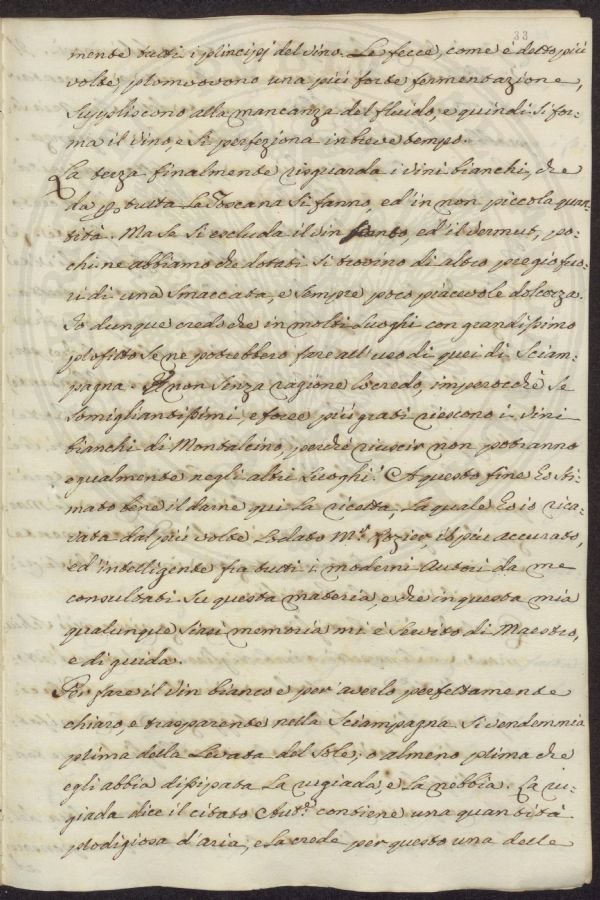 33
mente tutti i principj del vino. Le fecce, come è detto più
volte promuovono una più forte fermentazione,
suppliscono alla mancanza del fluido, e quindi si for-
ma il vino, e si perfeziona in breve tempo.
La terza finalmente risguarda i vini bianchi, che
da p. tutta La Toscana si fanno, ed in non piccola quan-
tità. Ma se si escluda il vin santo, ed il vermut, po-
chi ne abbiamo che dotati si trovino di altro pregio fuo-
ri di una smaccata, e sempre poco piacevole dolcezza.
Io dunque credo che in molti Luoghi con grandissimo
profitto se ne potrebbero fare all'uso di quei di Sciam-
pagna. E non senza ragione lo credo, imperocchè se
somigliantissimi, e forse più grati riescono i vini
bianchi di Montalcino, perchè riuscir non potranno
egualmente negli altri Luoghi? A questo fine ho sti-
mato bene il darne qui La ricetta, La quale ho io rica-
vata dal più volte Lodato M.r Rozier, il più accurato,
ed intelligente fra tutti i moderni Autori da me
consultati su questa materia, e che in questa mia
qualunque siasi memoria mi è servito di Maestro,
e di guida.
Per fare il vin bianco e per averlo perfettamente
chiaro, e trasparente nella Sciampagna si vendemmia
prima della Levata del Sole, o almeno prima che
egli abbia dissipata La rugiada, e la nebbia. La ru-
giada dice il citato Aut.e contiene una quantità
prodigiosa d'aria, e la crede per questo una delle